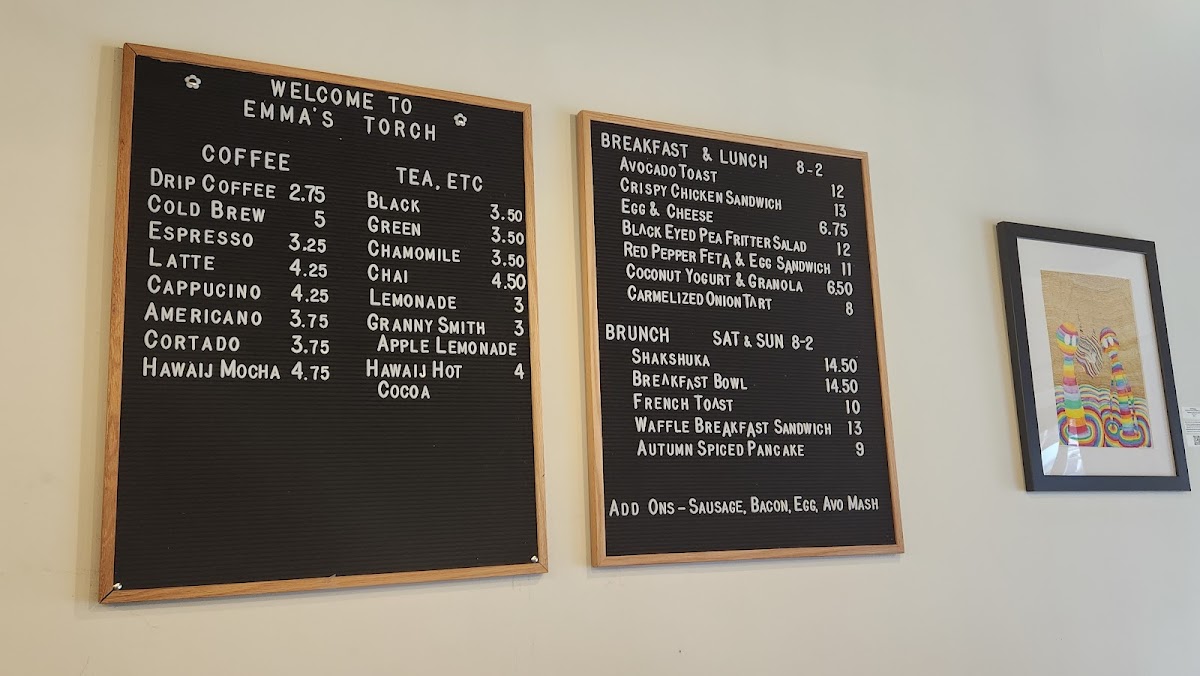 WELCOME TO
EMMA'S TORCH
COFFEE
DRIP COFFEE 2.75
COLD BREW 5
ESPRESSO 3.25
LATTE 4.25
CAPPUCINO 4.25
AMERICANO 3.75
CORTADO 3.75
HAWAIJ MOCHA 4.75
TEA, ETC
BLACK 3.50
GREEN 3.50
CHAMOMILE 3.50
CHAI 4.50
LEMONADE 3
GRANNY SMITH 3
APPLE LEMONADE
HAWAIJ HOT 4
COCOA
BREAKFAST & LUNCH 8-2
AVOCADO TOAST 12
CRISPY CHICKEN SANDWICH 13
EGG & CHEESE 6.75
BLACK EYED PEA FRITTER SALAD 12
RED PEPPER FETA & EGG SANDWICH 11
COCONUT YOGURT & GRANOLA 6.50
CARMELIZED ONION TART 8
BRUNCH SAT & SUN 8-2
SHAKSHUKA 14.50
BREAKFAST BOWL 14.50
FRENCH TOAST 10
WAFFLE BREAKFAST SANDWICH 13
AUTUMN SPICED PANCAKE 9
ADD ONS - SAUSAGE, BACON, EGG, AVO MASH